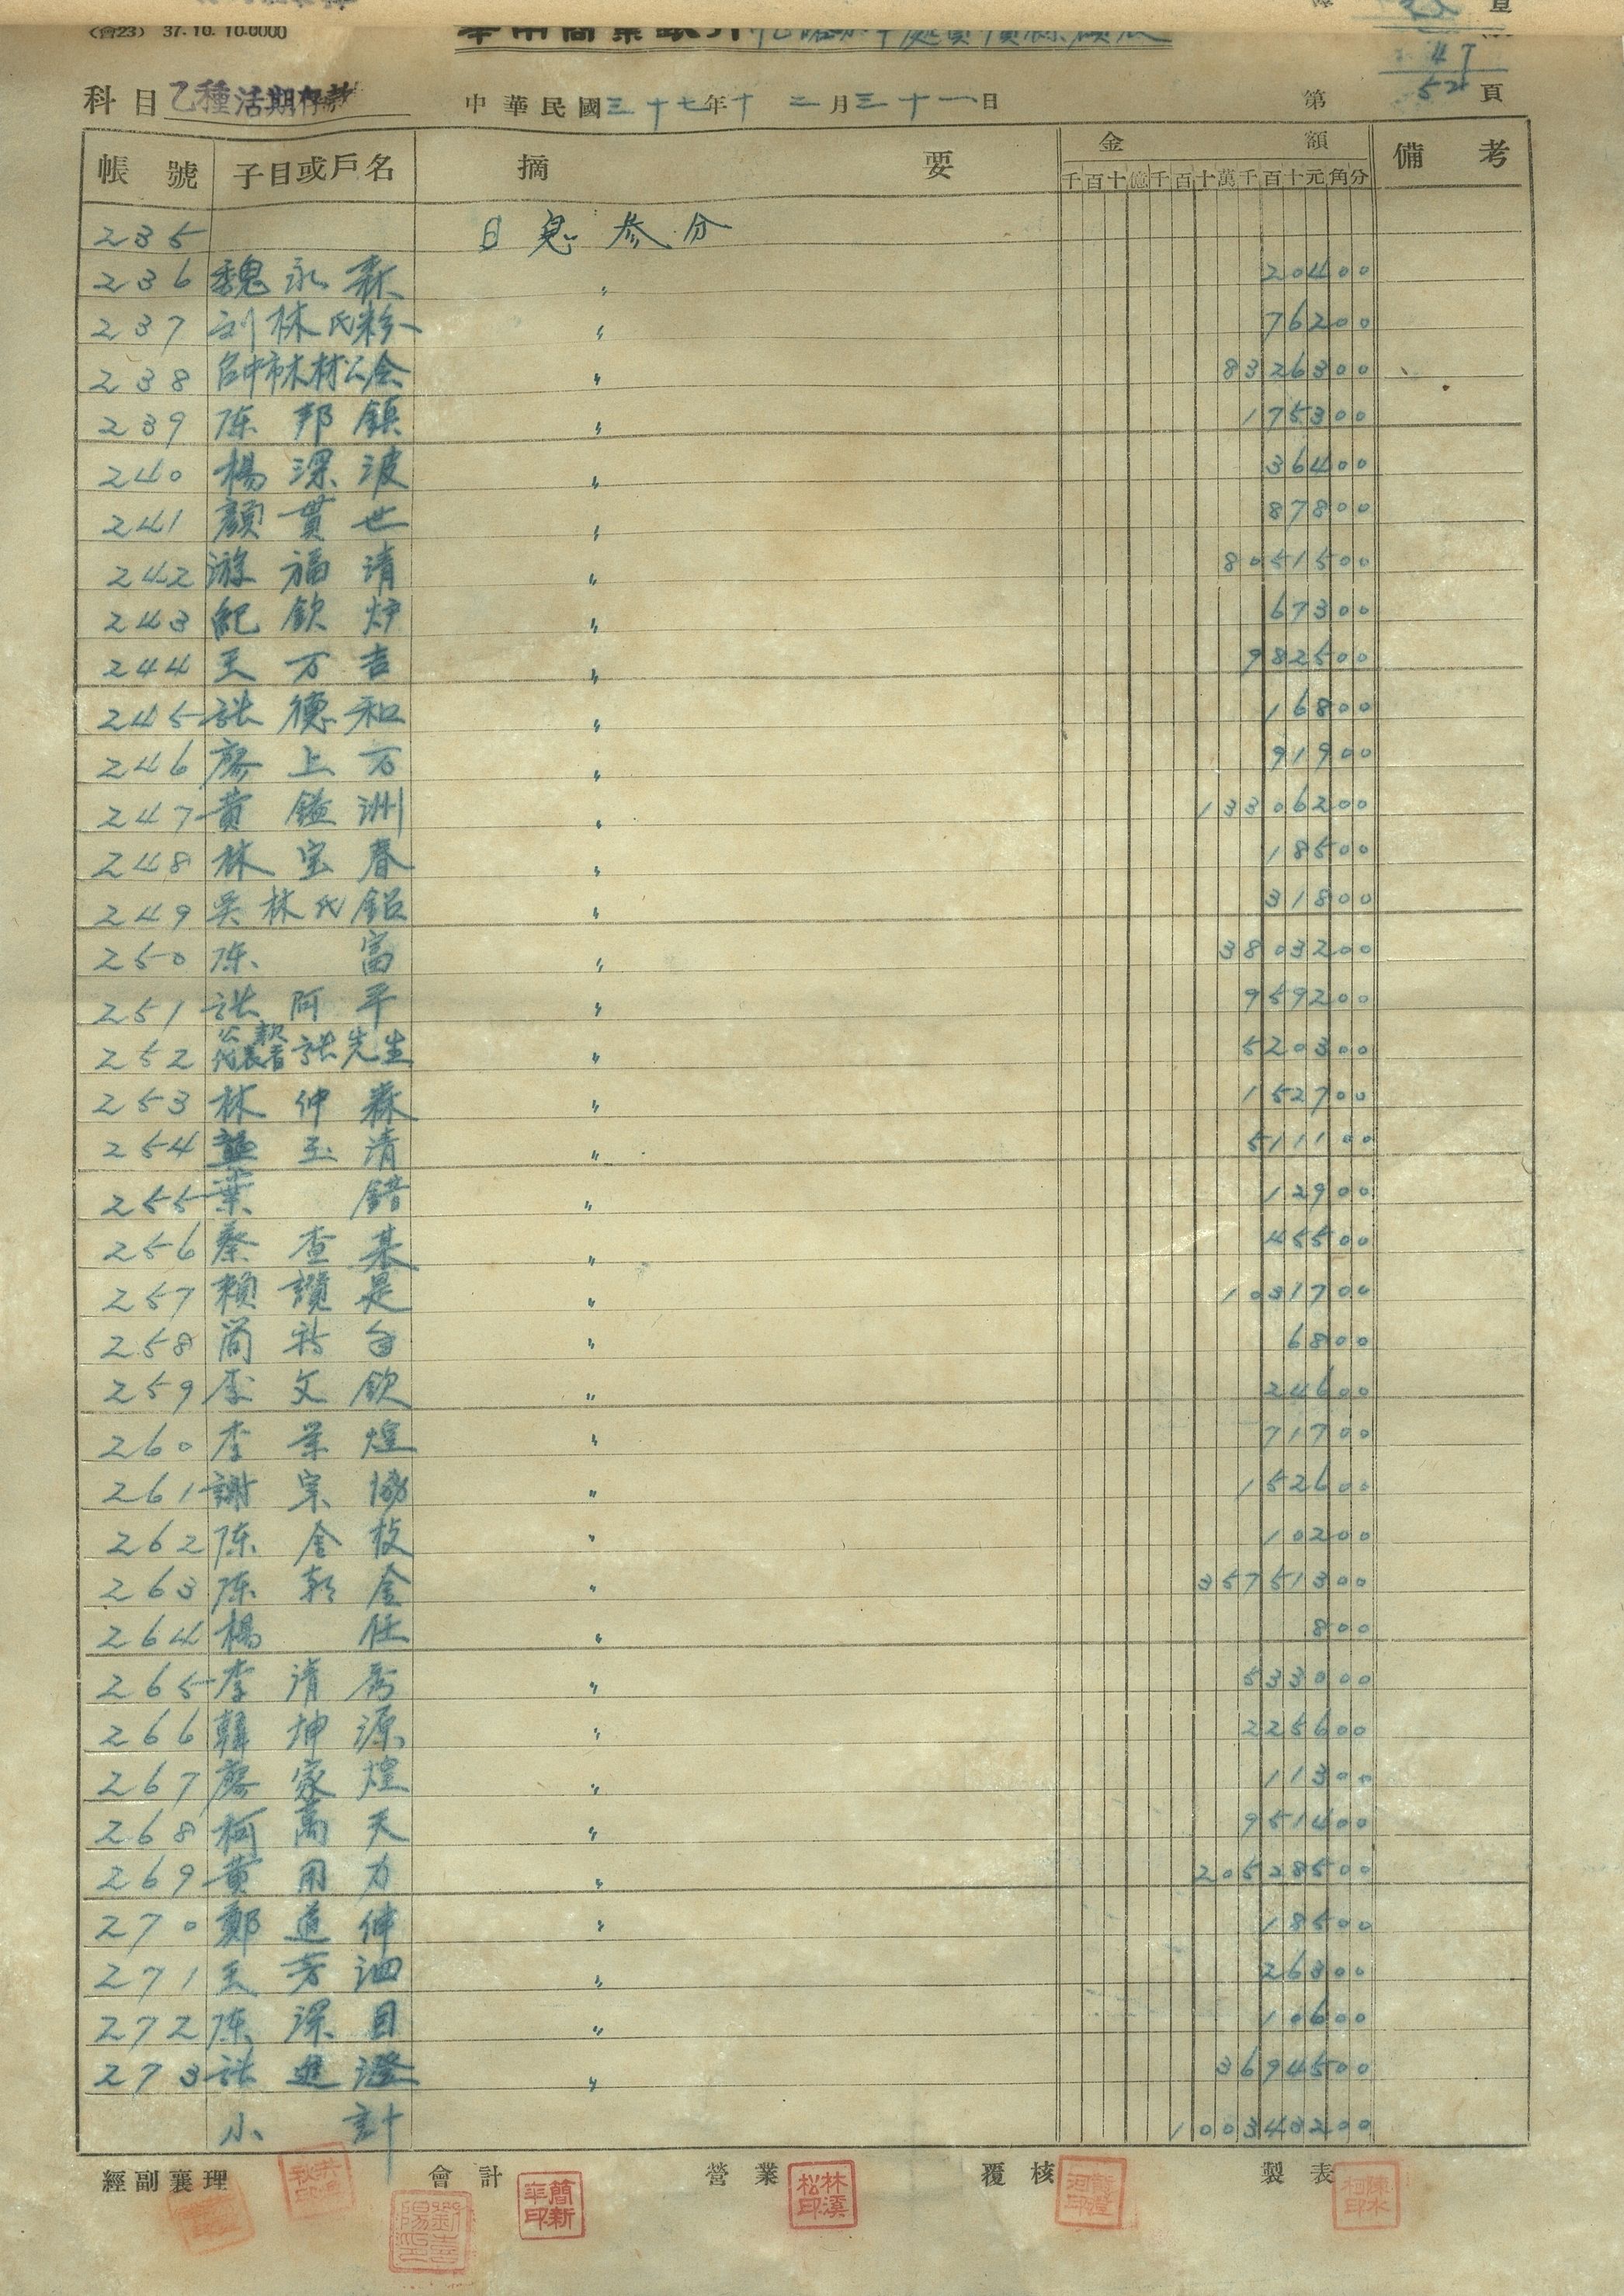 (會23) 37.10.10.0000
科目 乙種活期存款 中華民國三十七年十二月三十一日 第 52 頁
帳號 子目或戶名 摘要 金額 備考
千百十億千百十萬千百十元角分
235 日息參分
236 魏永森 〃 20400
237 劉林氏粉 〃 76200
238 台中市木材公会 〃 8326300
239 陈邦鎮 〃 175300
240 楊深波 〃 36400
241 顏貫世 〃 87800
242 游福清 〃 8051500
243 紀欽炉 〃 67300
244 王万吉 〃 982500
245 張德和 〃 16800
246 廖上万 〃 91900
247 黄鎰洲 〃 13306200
248 林宝春 〃 18500
249 吳林氏鋁 〃 31800
250 陈富 〃 3803200
251 張阿平 〃 959200
252 公款代表者張先生 〃 520300
253 林仲森 〃 152700
254 玉清 〃 511100
255 葉錯 〃 12900
256 蔡查某 〃 45500
257 賴讚是 〃 1031700
258 簡 〃 6800
259 李文欽 〃 24600
260 李業煌 〃 71700
261 謝宗協 〃 152600
262 陈金枝 〃 10200
263 陈朝金 〃 35751300
264 楊任 〃 800
265 李清秀 〃 533000
266 韓坤源 〃 225600
267 廖家煌 〃 11300
268 柯萬天 〃 951400
269 黄用力 〃 20528500
270 鄭道伸 〃 18500
271 王芳泗 〃 26300
272 陈深目 〃 10600
273 張進澄 〃 3694500
小計 100343200
經副襄理 會計 營業 覆核 製表
簡新華印 林溪松印 陳水柯印